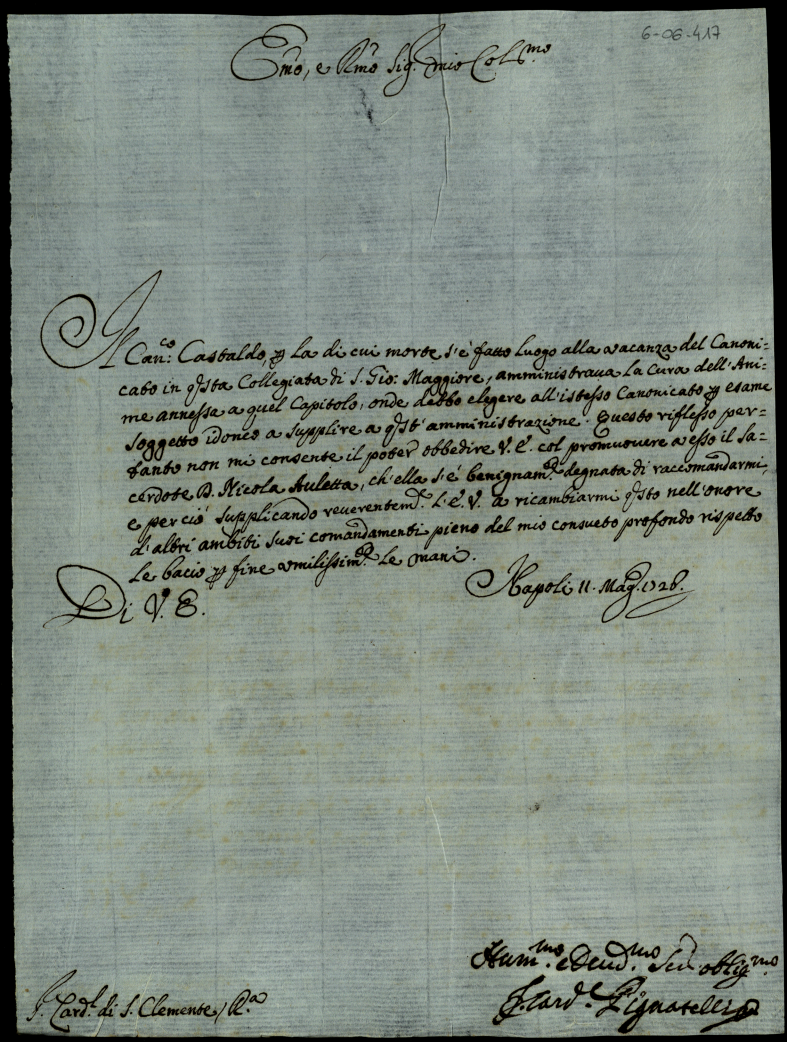 6-06-417
Emo, e Rmo Sig. mio Col.mo
Il Can.co Castaldo, p la di cui morte s'è fatto luogo alla vacanza del Canoni-
cato in qsta Collegiata di S. Gio: Maggiore, amministrava la Cura dell'Ani-
me annessa a quel Capitolo, onde debbo elegere all'istesso Canonicato p esame
soggetto idoneo a supplire a qst'amministrazione. Questo riflesso per-
tanto non mi consente il poter obbedire V. E. col promuovere a esso il Sa-
cerdote D. Nicola Auletta, ch'ella s'è benignam.te degnata di raccomandarmi,
e perciò supplicando reverentem.te l'E. V. a ricambiarmi qsto nell'onore
d'altri ambiti suoi comandamenti pieno del mio consueto profondo rispetto
le bacio p fine umilissim.te le mani.
Di V. E. Napoli 11. Mag. 1726.
Hum.mo e Deud.mo Ser. oblig.mo
F. Card.le Pignatelli
S. Card.l di S. Clemente / R.a